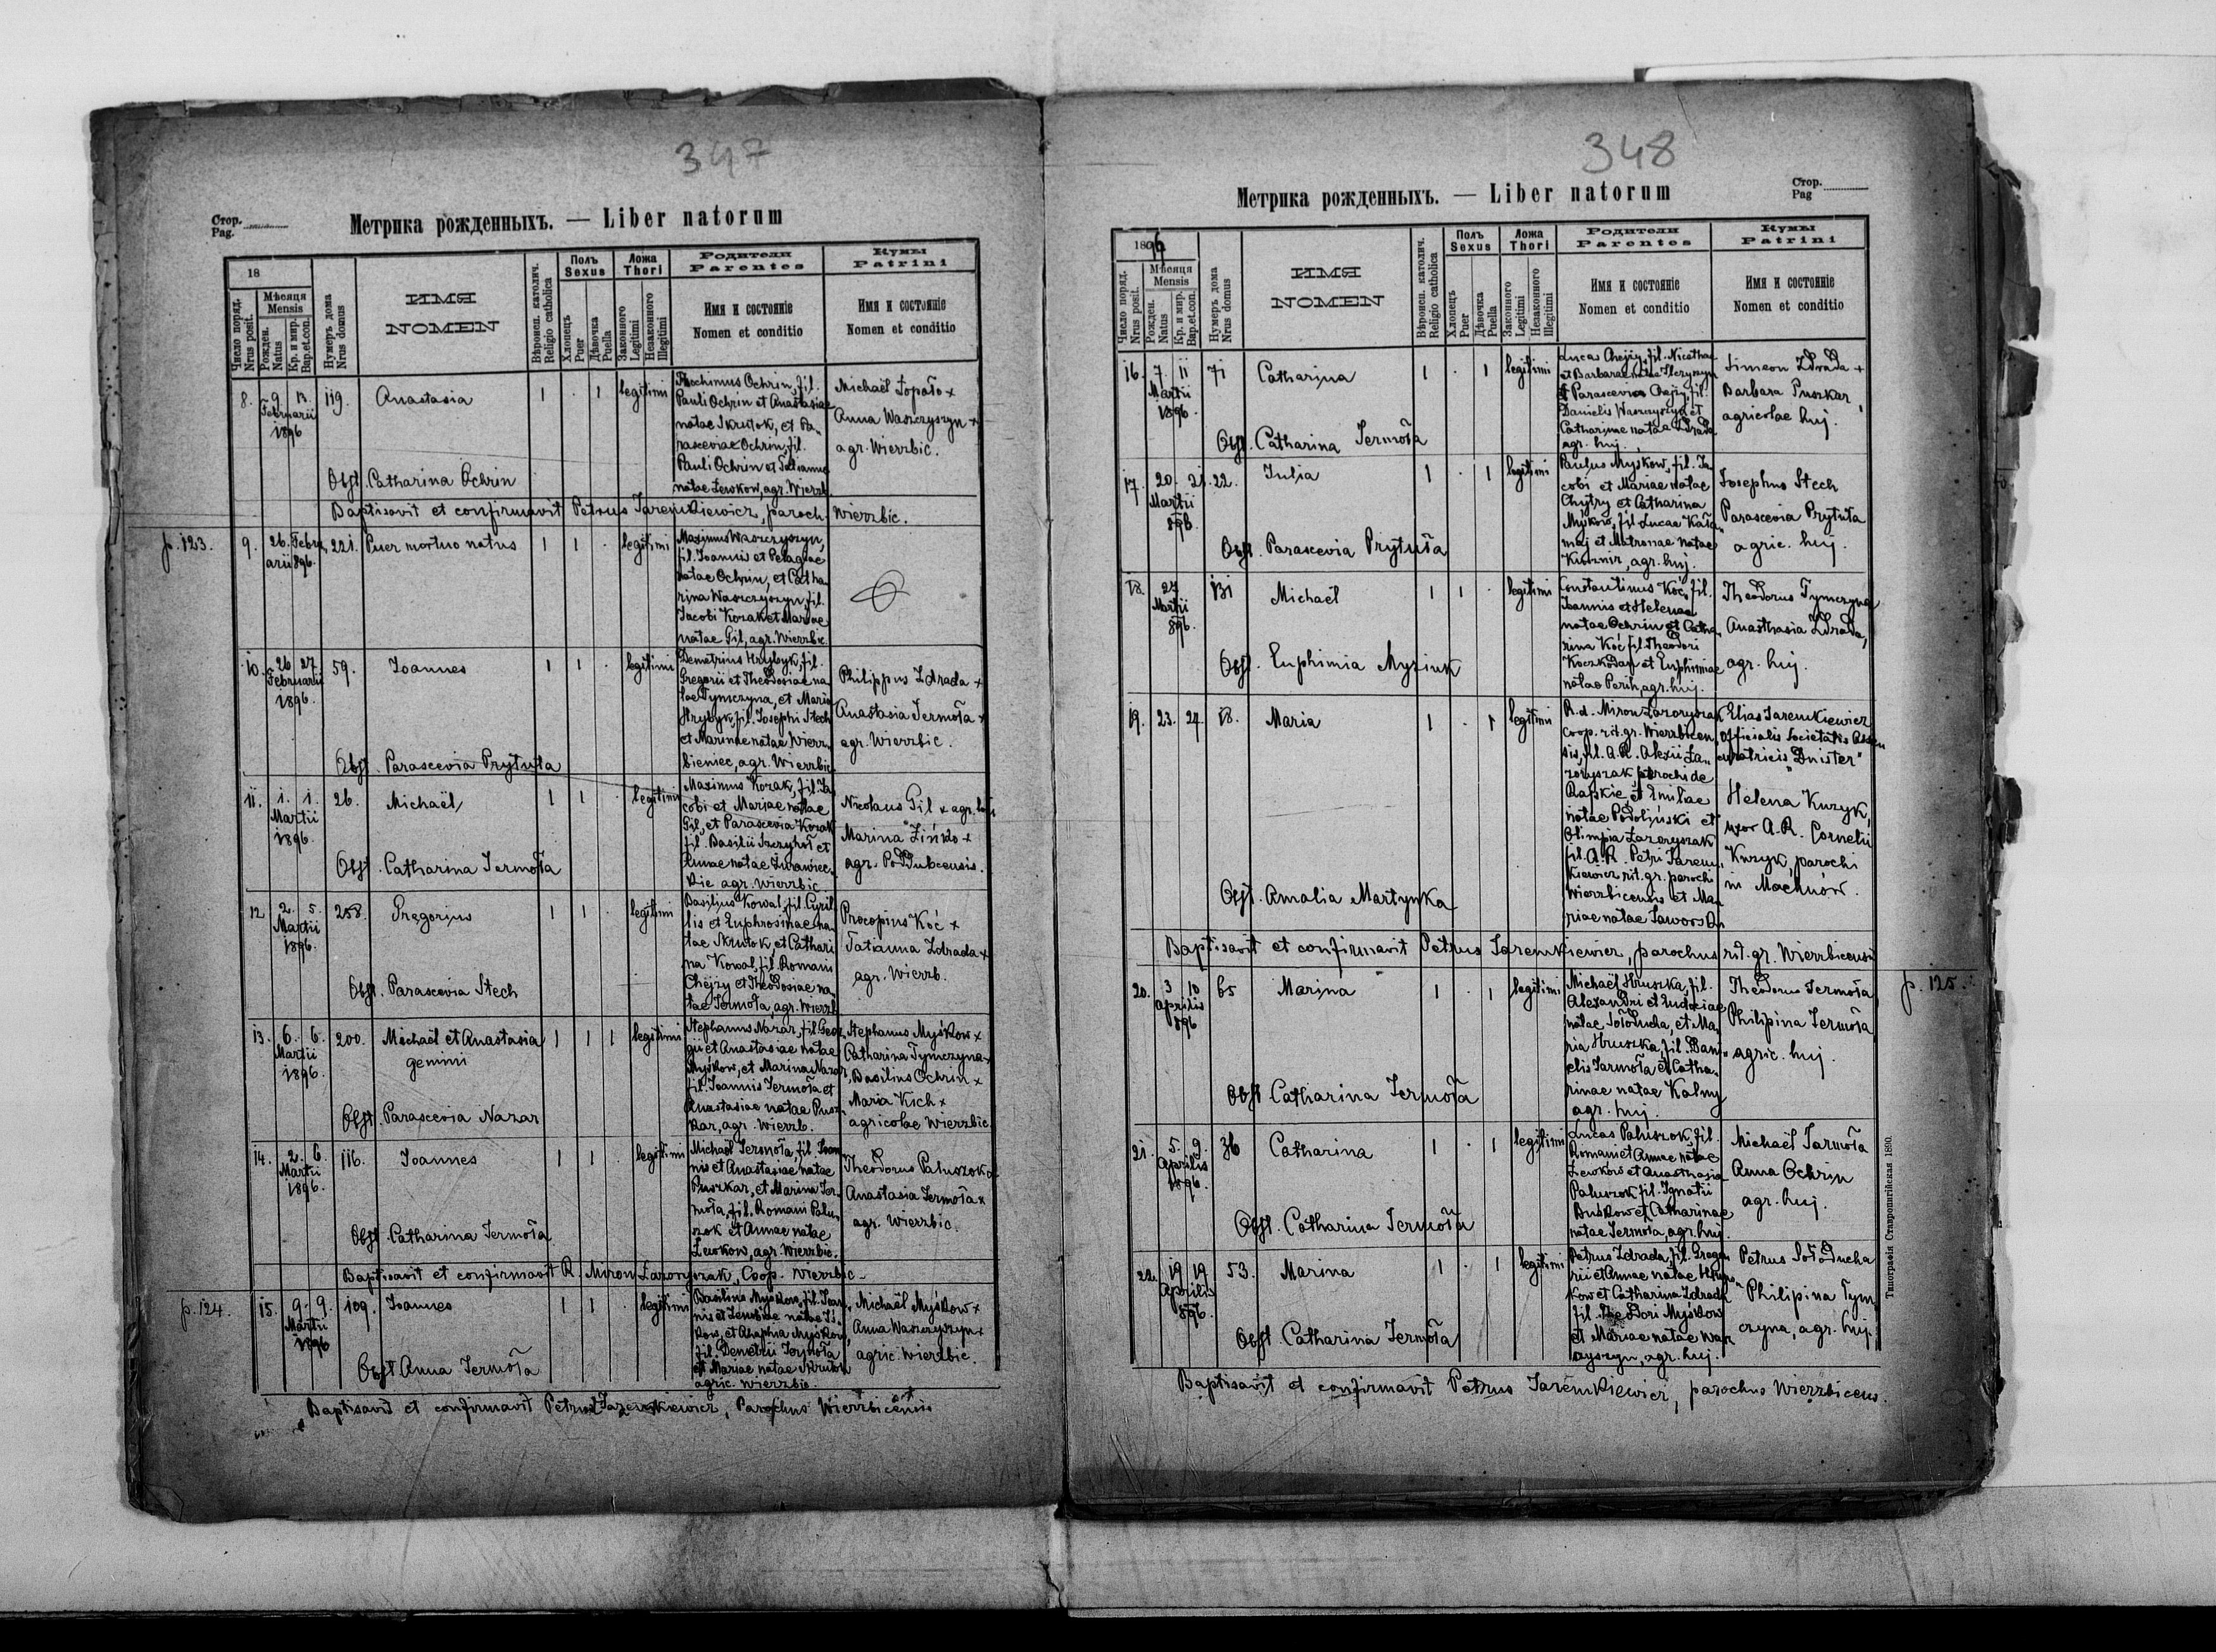 347
Стор.
Pag.
Метрика рожденныхъ. — Liber natorum
18
Число поряд.
Nrus posit.
Мѣсяця
Mensis
Рожден.
Natus
Кр. и мир.
Bap.et.con.
Нумеръ дома
Nrus domus
ИМЯ
NOMEN
Вѣроисп. католич.
Religio catholica
Полъ
Sexus
Хлопецъ
Puer
Дѣвочка
Puella
Ложа
Thori
Законного
Legitimi
Незаконного
Illegitimi
Родители
Parentes
Имя и состоянie
Nomen et conditio
Кумы
Patrini
Имя и состоянie
Nomen et conditio
8. 9. 13. Februarii 1896 119. Anastasia 1 . 1 legitimi
Ochrin, fil.
Pauli Ochrin et Anastasiae
natae Skrutok, et Pa-
rasceviae Ochrin, fil.
Pauli Ochrin et Tatianna
natae Lewkow, agr. Wierzb.
Michaël Łopato +
Anna Waszczyszyn +
agr. Wierzbic.
Obst. Catharina Ochrin
Baptisavit et confirmavit Petrus Jaremkiewicz, paroch. Wierzbic.
p. 123.
9. 26. Februarii 1896. 221. Puer mortuo natus 1 1 . legitimi
Maximus Waszczyszyn,
fil. Joannis et Pelagiae
natae Ochrin, et Catha
rina Waszczyszyn, fil.
Jacobi Kozak et Mariae
natae Gil, agr. Wierzbic
10. 26. 27. Februarii 1896. 59. Joannes 1 1 . legitimi
Demetrius Hrybyk, fil.
Gregorii et Theodosiae na
tae Tymczyna, et Maria
Hrybyk, fil. Josephi Stech
et Marinae natae Wierz-
bieniec, agr. Wierzbic
Philippus Zdrada +
Anastasia Jermoła +
agr. Wierzbic.
Obst. Parascevia Prytuła
11. 1. 1. Martii 1896. 26. Michaël 1 1 . legitimi
Maximus Kozak, fil. Ja
cobi et Mariae natae
Gil, et Parascevia Kozak
fil. Basilii et
Annae natae
agr. Wierzbic.
Nicolaus Gil + agr.
Marina Zińko +
agr. Poddubcensis.
Obst. Catharina Jermoła
12 2. 5. Martii 1896. 258. Gregorius 1 1 . legitimi
Basilius Kowal, fil. Cyril
lis et Euphrosinae na
tae Skrutok et Cathari
na Kowal, fil. Romani
Chejzy et Theodosiae na
tae Jermoła, agr. Wierzb
Procopius Koć +
Tatianna Zdrada +
agr. Wierzb.
Obst. Parascevia Stech
13. 6. 6. Martii 1896. 200. Michaël et Anastasia 1 1 1 legitimi
gemini
Stephanus Nazar, fil. Geor
gii et Anastasiae natae
Myśkow, et Marina Nazar
fil. Joannis Jermoła et
Anastasiae natae Pusz-
kar, agr. Wierzb.
Stephanus Myśkow +
Catharina Tymczyna +
Basilius Ochrin +
Maria Kich +
agricolae Wierzbic.
Obst. Parascevia Nazar
14. 2. 6. Martii 1896. 116. Joannes 1 1 . legitimi
Michaël Jermoła, fil. Joan
nis et Anastasiae natae
Puszkar, et Marina Jer-
moła, fil. Romani Palu-
szok et Annae natae
Lewkow, agr. Wierzbic.
Theodorus Paluszok +
Anastasia Jermoła +
agr. Wierzbic.
Obst. Catharina Jermoła
Baptisavit et confirmavit R. Miron Zazoryszak, Coop. Wierzbic
p. 124.
15. 9. 9. Martii 1896 109. Joannes 1 1 . legitimi
Basilius Myśkow, fil. Joan
nis et natae
et Ahaphia Myśkow,
fil. Demetrii Jermoła
et Mariae natae Skrutok
agric. Wierzbic.
Michaël Myśkow +
Anna Waszczyszyn +
agric. Wierzbic.
Obst. Anna Jermoła
Baptisavit et confirmavit Petrus Jaremkiewicz, Parochus Wierzbicensis
348
Метрика рожденныхъ. — Liber natorum
Стор.
Pag
1896
Число поряд.
Nrus posit.
Мѣсяця
Mensis
Рожден.
Natus
Кр. и мир.
Bap.et.con.
Нумеръ дома
Nrus domus
ИМЯ
NOMEN
Вѣроисп. католич.
Religio catholica
Полъ
Sexus
Хлопецъ
Puer
Дѣвочка
Puella
Ложа
Thori
Законного
Legitimi
Незаконного
Illegitimi
Родители
Parentes
Имя и состоянie
Nomen et conditio
Кумы
Patrini
Имя и состоянie
Nomen et conditio
16. 7. 11 Martii 1896. 71 Catharina 1 . 1 legitimi
Lucas Chejzy, fil. Nicethae
et Barbarae natae
et Parascevia Chejzy, fil.
Danielis Waszczyszyn et
Catharinae natae Zdrada
agr. huj.
Simeon Zdrada +
Barbara Puszkar,
agricolae huj.
Obst. Catharina Jermoła
17. 20. 21. Martii 896. 22. Julia 1 . 1 legitimi
Paulus Myskow, fil. Ja
cobi et Mariae natae
Chytry et Catharina
Myskow, fil. Lucae Kała-
maj et Matronae natae
Kusznir, agr. huj.
Josephus Stech
Parascevia Prytuła
agric. huj.
Obst. Parascevia Prytuła
18. 27 Martii 896. 131 Michaël 1 1 . legitimi
Constantinus Koć, fil.
Joannis et Helenae
natae Ochrin et Catha-
rina Koć fil. Theodori
Koczkodan et Euphimiae
natae Perih, agr. huj.
Theodorus Tymczyna
Anasthasia Zdrada,
agr. huj.
Obst. Euphimia Myziuk
19. 23. 27. 18. Maria 1 . 1 legitimi
R.d. Miron Zazoryszak
coop. rit. gr. Wierzbicen-
sis, fil. A.R. Alexii Za-
zoryszak, parochi de
Rapkie, et Emiliae
natae Podolinski et
Olimpia Zazoryszak
fil. A.R. Petri Jarem-
kiewicz rit. gr. parochi
Wierzbicensis et Ma
riae natae
Elias Jaremkiewicz
officialis Societatis
"Dnister"
Helena Kuzyk,
uxor A.R. Cornelii
Kuzyk, parochi
in Machnów.
Obst. Amalia Martynka
Baptisavit et confirmavit Petrus Jaremkiewicz, parochus rit. gr. Wierzbicensis
20. 3 10 Aprilis 896 65 Marina 1 . 1 legitimi
Michaël Hruszka, fil.
Alexandri et Eudociae
natae Sołoducha, et Ma-
ria Hruszka, fil. Dani-
elis Jarmoła et Catha-
rinae natae Kalny
agr. huj.
Theodorus Jermoła
Philipina Jermoła
agric. huj.
p. 125.
Obst. Catharina Jermoła
21. 5. 9. Aprilis 1896. 36 Catharina 1 . 1 legitimi
Lucas Paluszok, fil.
Romani et Annae natae
Lewkow et Anasthasia
Paluszok fil. Ignatii
Buskow et Catharinae
natae Jermoła, agr. huj.
Michaël Jarmoła
Anna Ochrin
agr. huj.
Obst. Catharina Jermoła
22. 19 19 Aprilis 896. 53. Marina 1 . 1 legitimi
Petrus Zdrada, fil. Grego
rii et Annae natae
et Catharina Zdrada
fil. Theodori Myśkow
et Mariae natae Wasz
czyszyn, agr. huj.
Petrus Sołoducha
Philipina Tym
czyna, agr. huj.
Obst. Catharina Jermoła
Baptisavit et confirmavit Petrus Jaremkiewicz, parochus Wierzbicens.
Типографія Ставропигійская 1890.